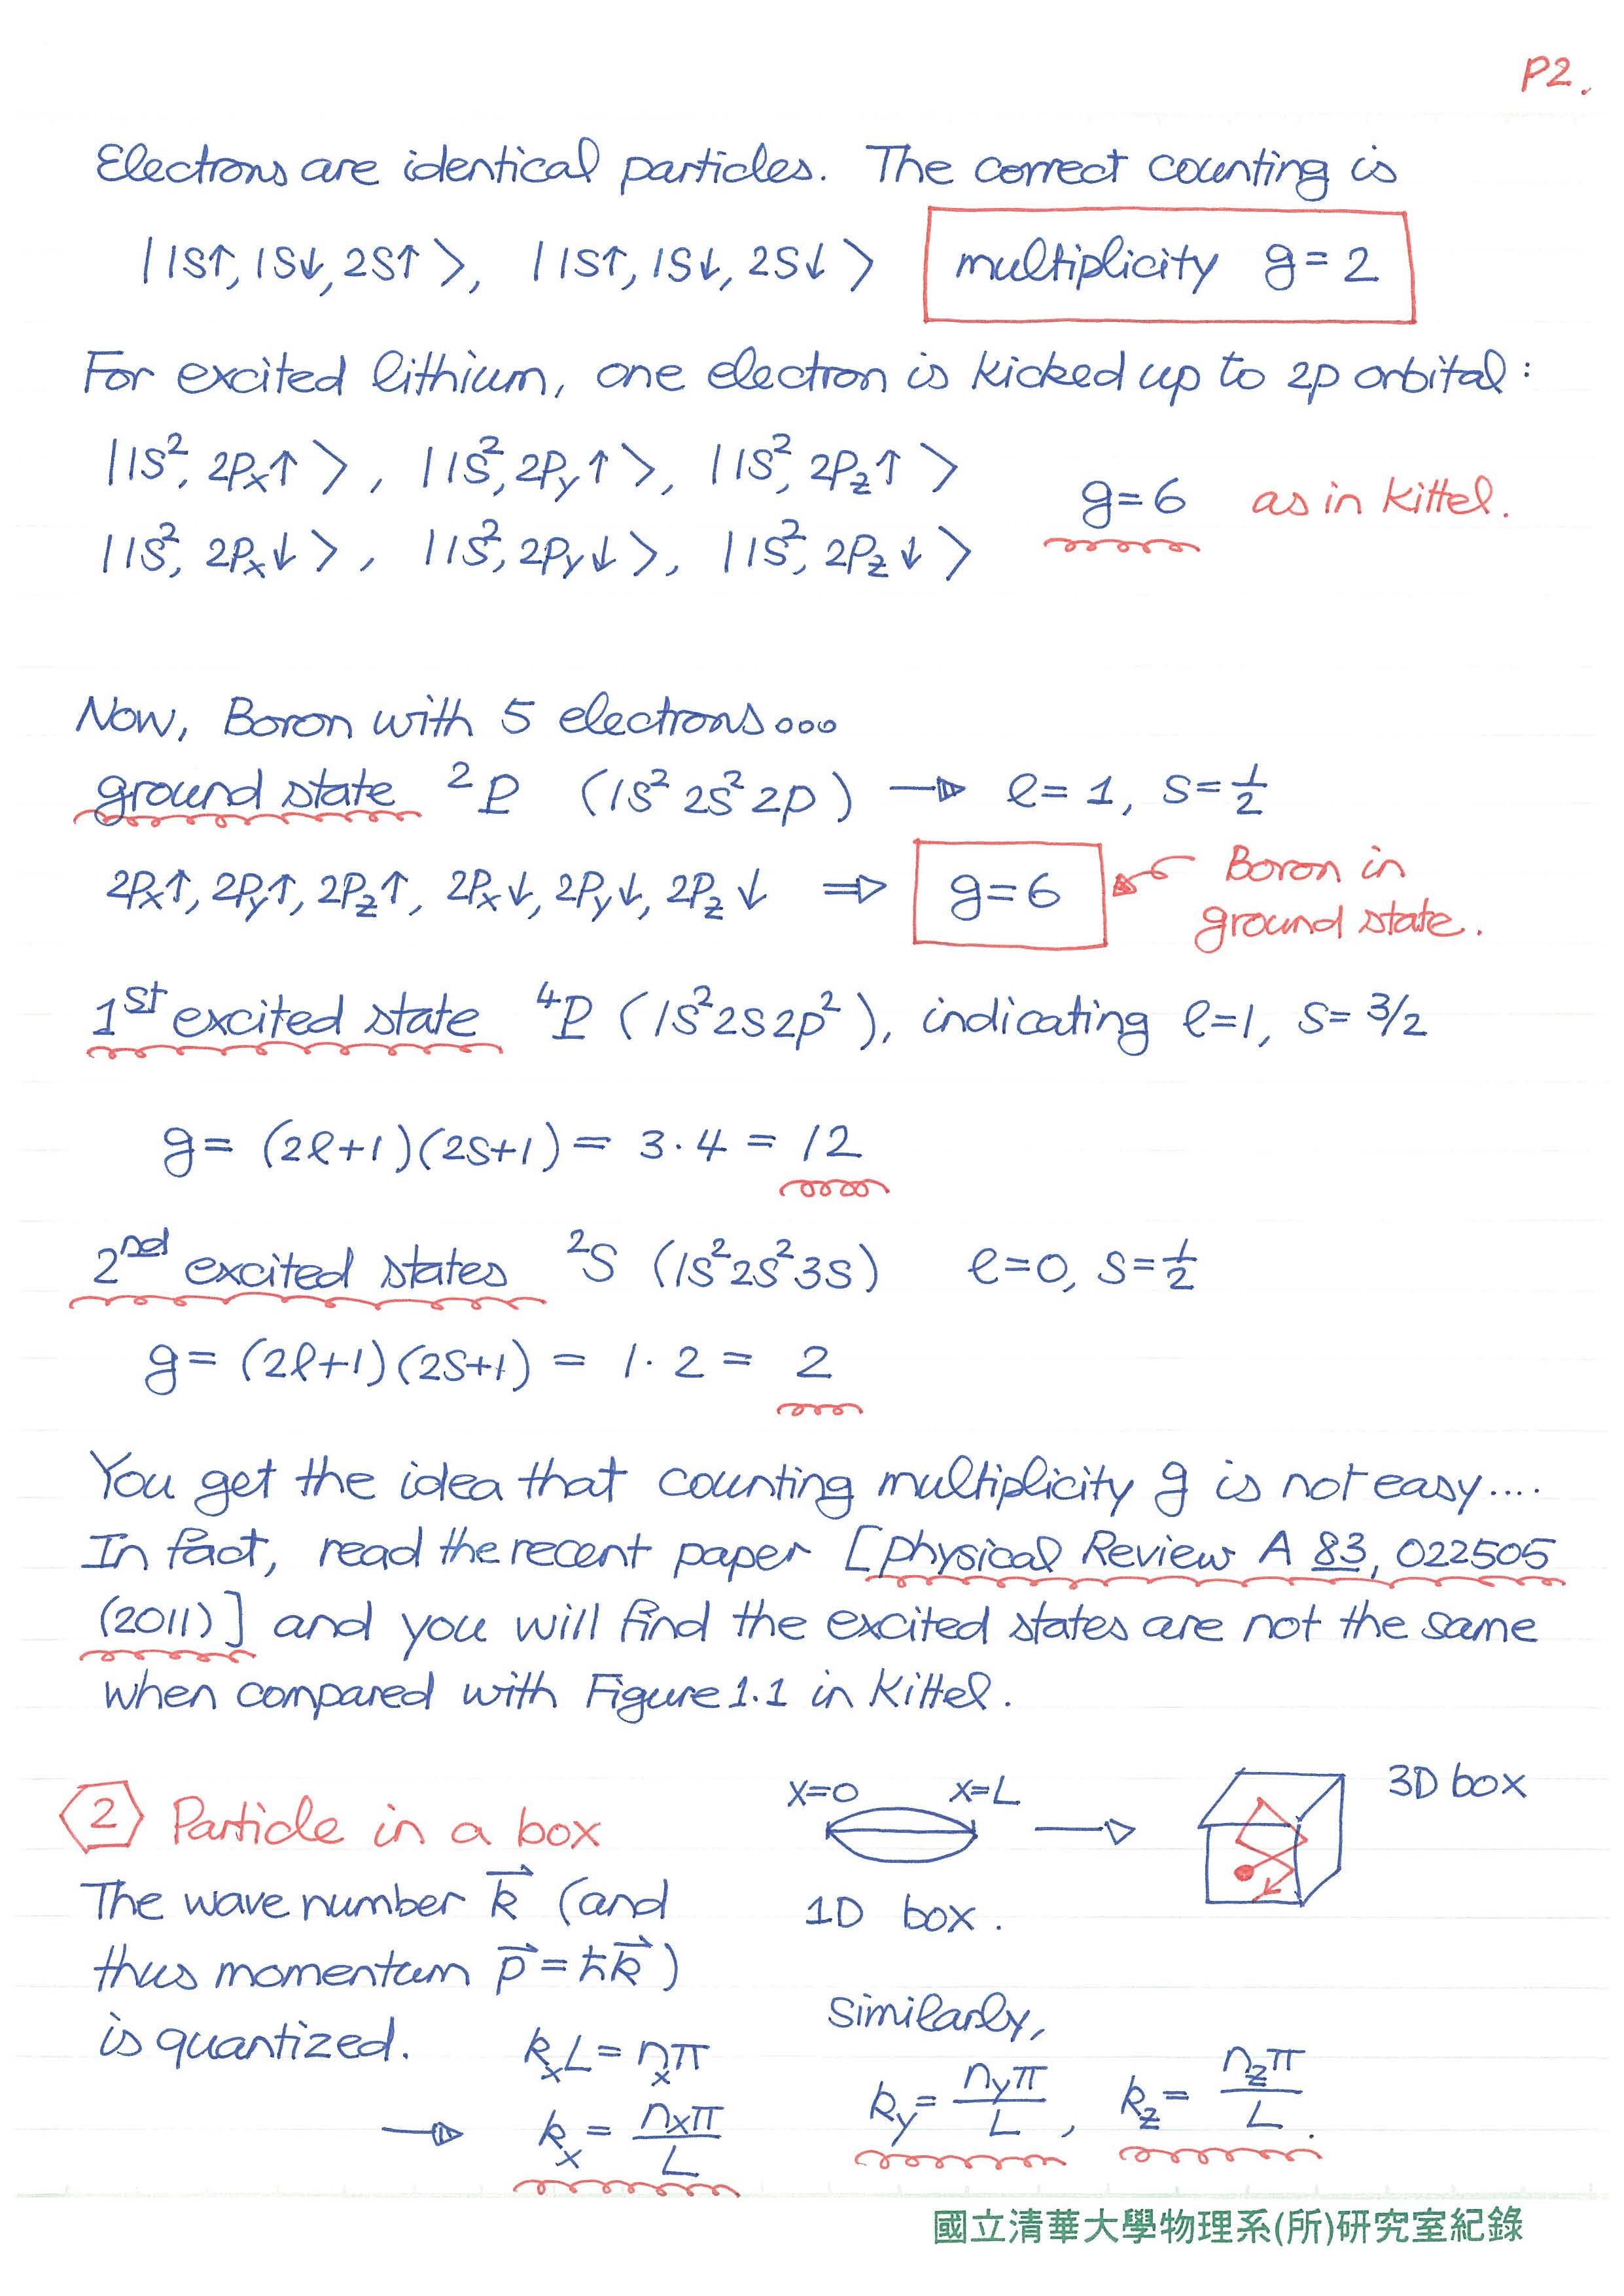 P2.
Electrons are identical particles. The correct counting is
|1S↑, 1S↓, 2S↑⟩, |1S↑, 1S↓, 2S↓⟩ multiplicity g = 2
For excited lithium, one electron is kicked up to 2p orbital:
|1S², 2Px↑⟩, |1S², 2Py↑⟩, |1S², 2Pz↑⟩
g=6 as in Kittel.
|1S², 2Px↓⟩, |1S², 2Py↓⟩, |1S², 2Pz↓⟩
Now, Boron with 5 electrons...
ground state ²P (1S² 2S² 2p) → ℓ= 1, S=½
2Px↑, 2Py↑, 2Pz↑, 2Px↓, 2Py↓, 2Pz↓ ⇒ g=6 Boron in
ground state.
1st excited state ⁴P (1S² 2S 2p²), indicating ℓ=1, S= 3/2
g= (2ℓ+1)(2S+1) = 3·4 = 12
2nd excited states ²S (1S² 2S² 3S) ℓ=0, S=½
g= (2ℓ+1)(2S+1) = 1·2 = 2
You get the idea that counting multiplicity g is not easy....
In fact, read the recent paper [Physical Review A 83, 022505
(2011)] and you will find the excited states are not the same
when compared with Figure 1.1 in Kittel.
2 Particle in a box
x=0 x=L
3D box
1D box.
The wave number k⃗ (and
thus momentum p⃗ = ħk⃗)
is quantized.
kxL = nxπ
→ kx = nxπ/L
Similarly,
ky = nyπ/L, kz = nzπ/L.
國立清華大學物理系(所)研究室紀錄